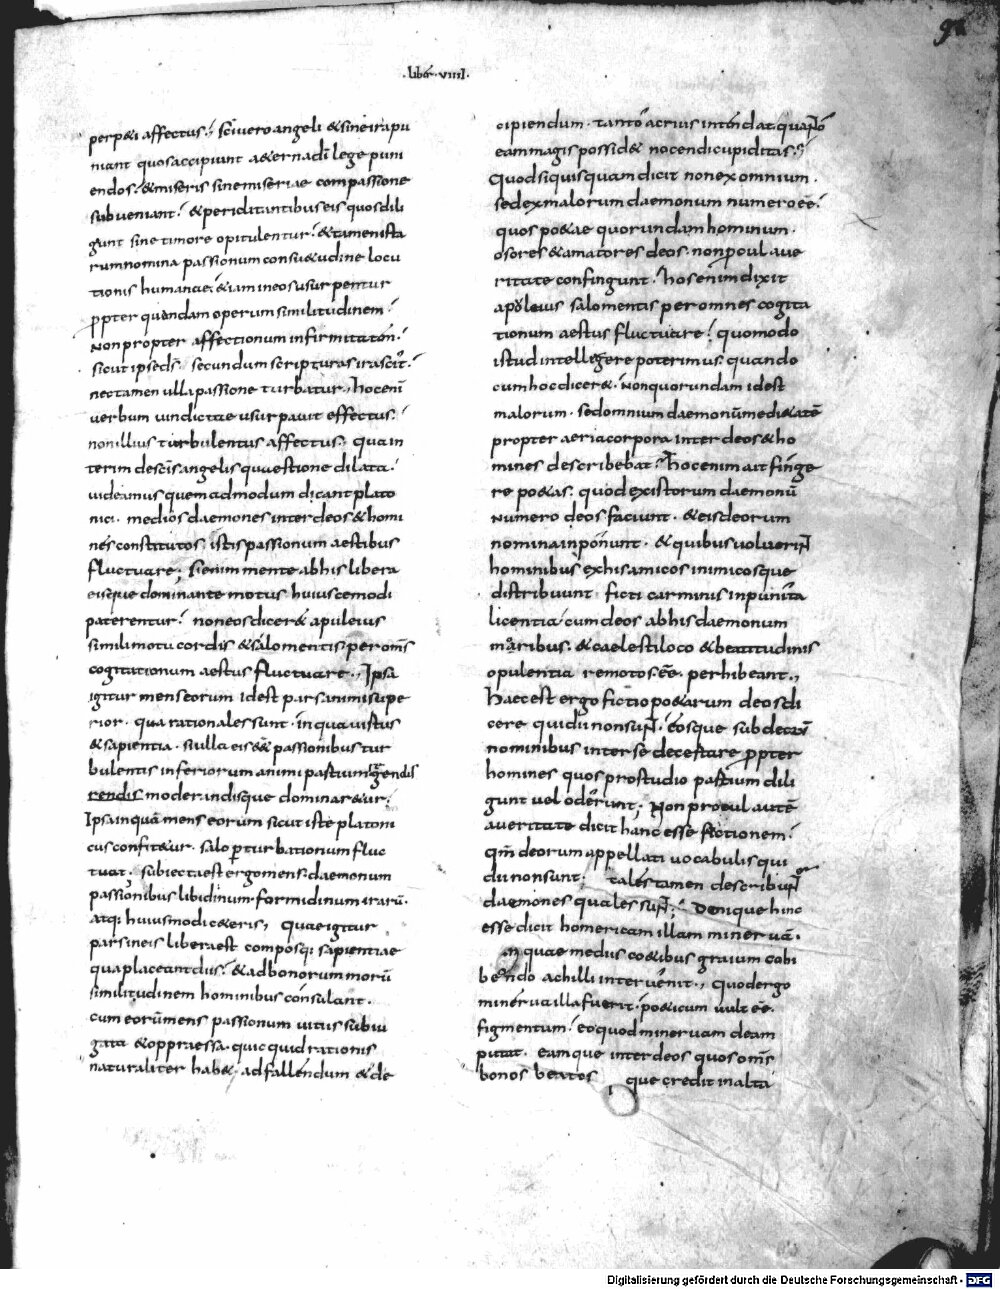 liber · viiii ·
perp&i affectus; sc̄i vero angeli & sine ira pu
niant quos accipiunt a&erna dī lege puni
endos. & miseris sine miseriae compassione
subueniant. & periclitantibus eis quos dili
gunt sine timore opitulentur. & tamen ista
rum nomina passionum consu&udine locu
tionis humanae. &iam in eos usurpentur
ꝓpter quandam operum similitudinem.
Non propter affectionum infirmitatem.
sicut ipse d̄s secundum scripturas irascit̄.
nec tamen ulla passione turbatur. hoc enī
uerbum uindictae usurpauit effectus.
non illius turbulentus affectus. qua in
terim de sc̄is angelis quaestione dilata.
uideamus quemadmodum dicant plato
nici. medios daemones inter deos & homi
nes constitutos istis passionum aestibus
fluctuare; Si enim mente ab his libera
eisque dominante motus huiuscemodi
paterentur. non eos dicer& apuleius
simili motu cordis & salo mentis per om̄s
cogitationum aestus fluctuare., Ipsa
igitur mens eorum id est pars animi supe
rior. qua rationales sunt. in qua uirtus
& sapientia. si ulla eis ess& passionibus tur
bulentis inferiorum animi partium regendis
rendis moderandisque dominar&ur.
Ipsa inquam mens eorum sicut iste platoni
cus confit&ur. salo ꝑturbationum fluc
tuat. subiecta est ergo mens daemonum
passionibus libidinum. formidinum irarū.
atq; huiusmodi c&eris, Quae igitur
pars in eis libera est composq; sapientiae
qua placeant diis. & ad bonorum morū
similitudinem hominibus consulant.
cum eorū mens passionum uitiis subiu
gata & oppraessa. quicquid rationis
naturaliter hab&. ad fallendum & de
cipiendum. tanto acrius intendat quanto
eam magis possid& nocendi cupiditas.
Quod si quisquam dicit non ex omnium.
sed ex malorum daemonum numero eē.
quos po&ae quorundam hominum.
osores & amatores deos. non ꝓcul a ue
ritate confingunt. hos enim dixit
apuleius salo mentis per omnes cogita
tionum aestus fluctuare. quomodo
istud intellegere poterimus. quando
cum hoc dicer&. Non quorundam id est
malorum. sed omnium daemonū medi&atē
propter aeria corpora inter deos & ho
mines describebat. hoc enim ait finge
re po&as. quod ex istorum daemonū
numero deos faciunt. & eis deorum
nomina inponunt. & quibus uoluerint
hominibus ex his amicos inimicosque
distribuunt ficti carminis inpunita
licentia. cum deos ab his daemonum
moribus. & caelesti loco & beatitudinis
opulentia remotos. eē. perhibeant.,
Haec est ergo fictio po&arum deos di
cere qui dii non sunt. eosque sub deorū
nominibus inter se decertare ꝓpter
homines quos pro studio partium dili
gunt uel oderunt; Non procul autē
a ueritate dicit hanc esse fictionem.
qm̄ deorum appellati uocabulis qui
dii non sunt; tales tamen describunt̄
daemones quales sunt; Denique hinc
esse dicit homericam illam mineruā.
quae mediis co&ibus graium cohi
bendo achilli interuenit., Quod ergo
minerua illa fuerit. po&icum uult eē.
figmentum. eo quod mineruam deam
putat. eamque inter deos quos om̄s
bonos beatos que credit in alta